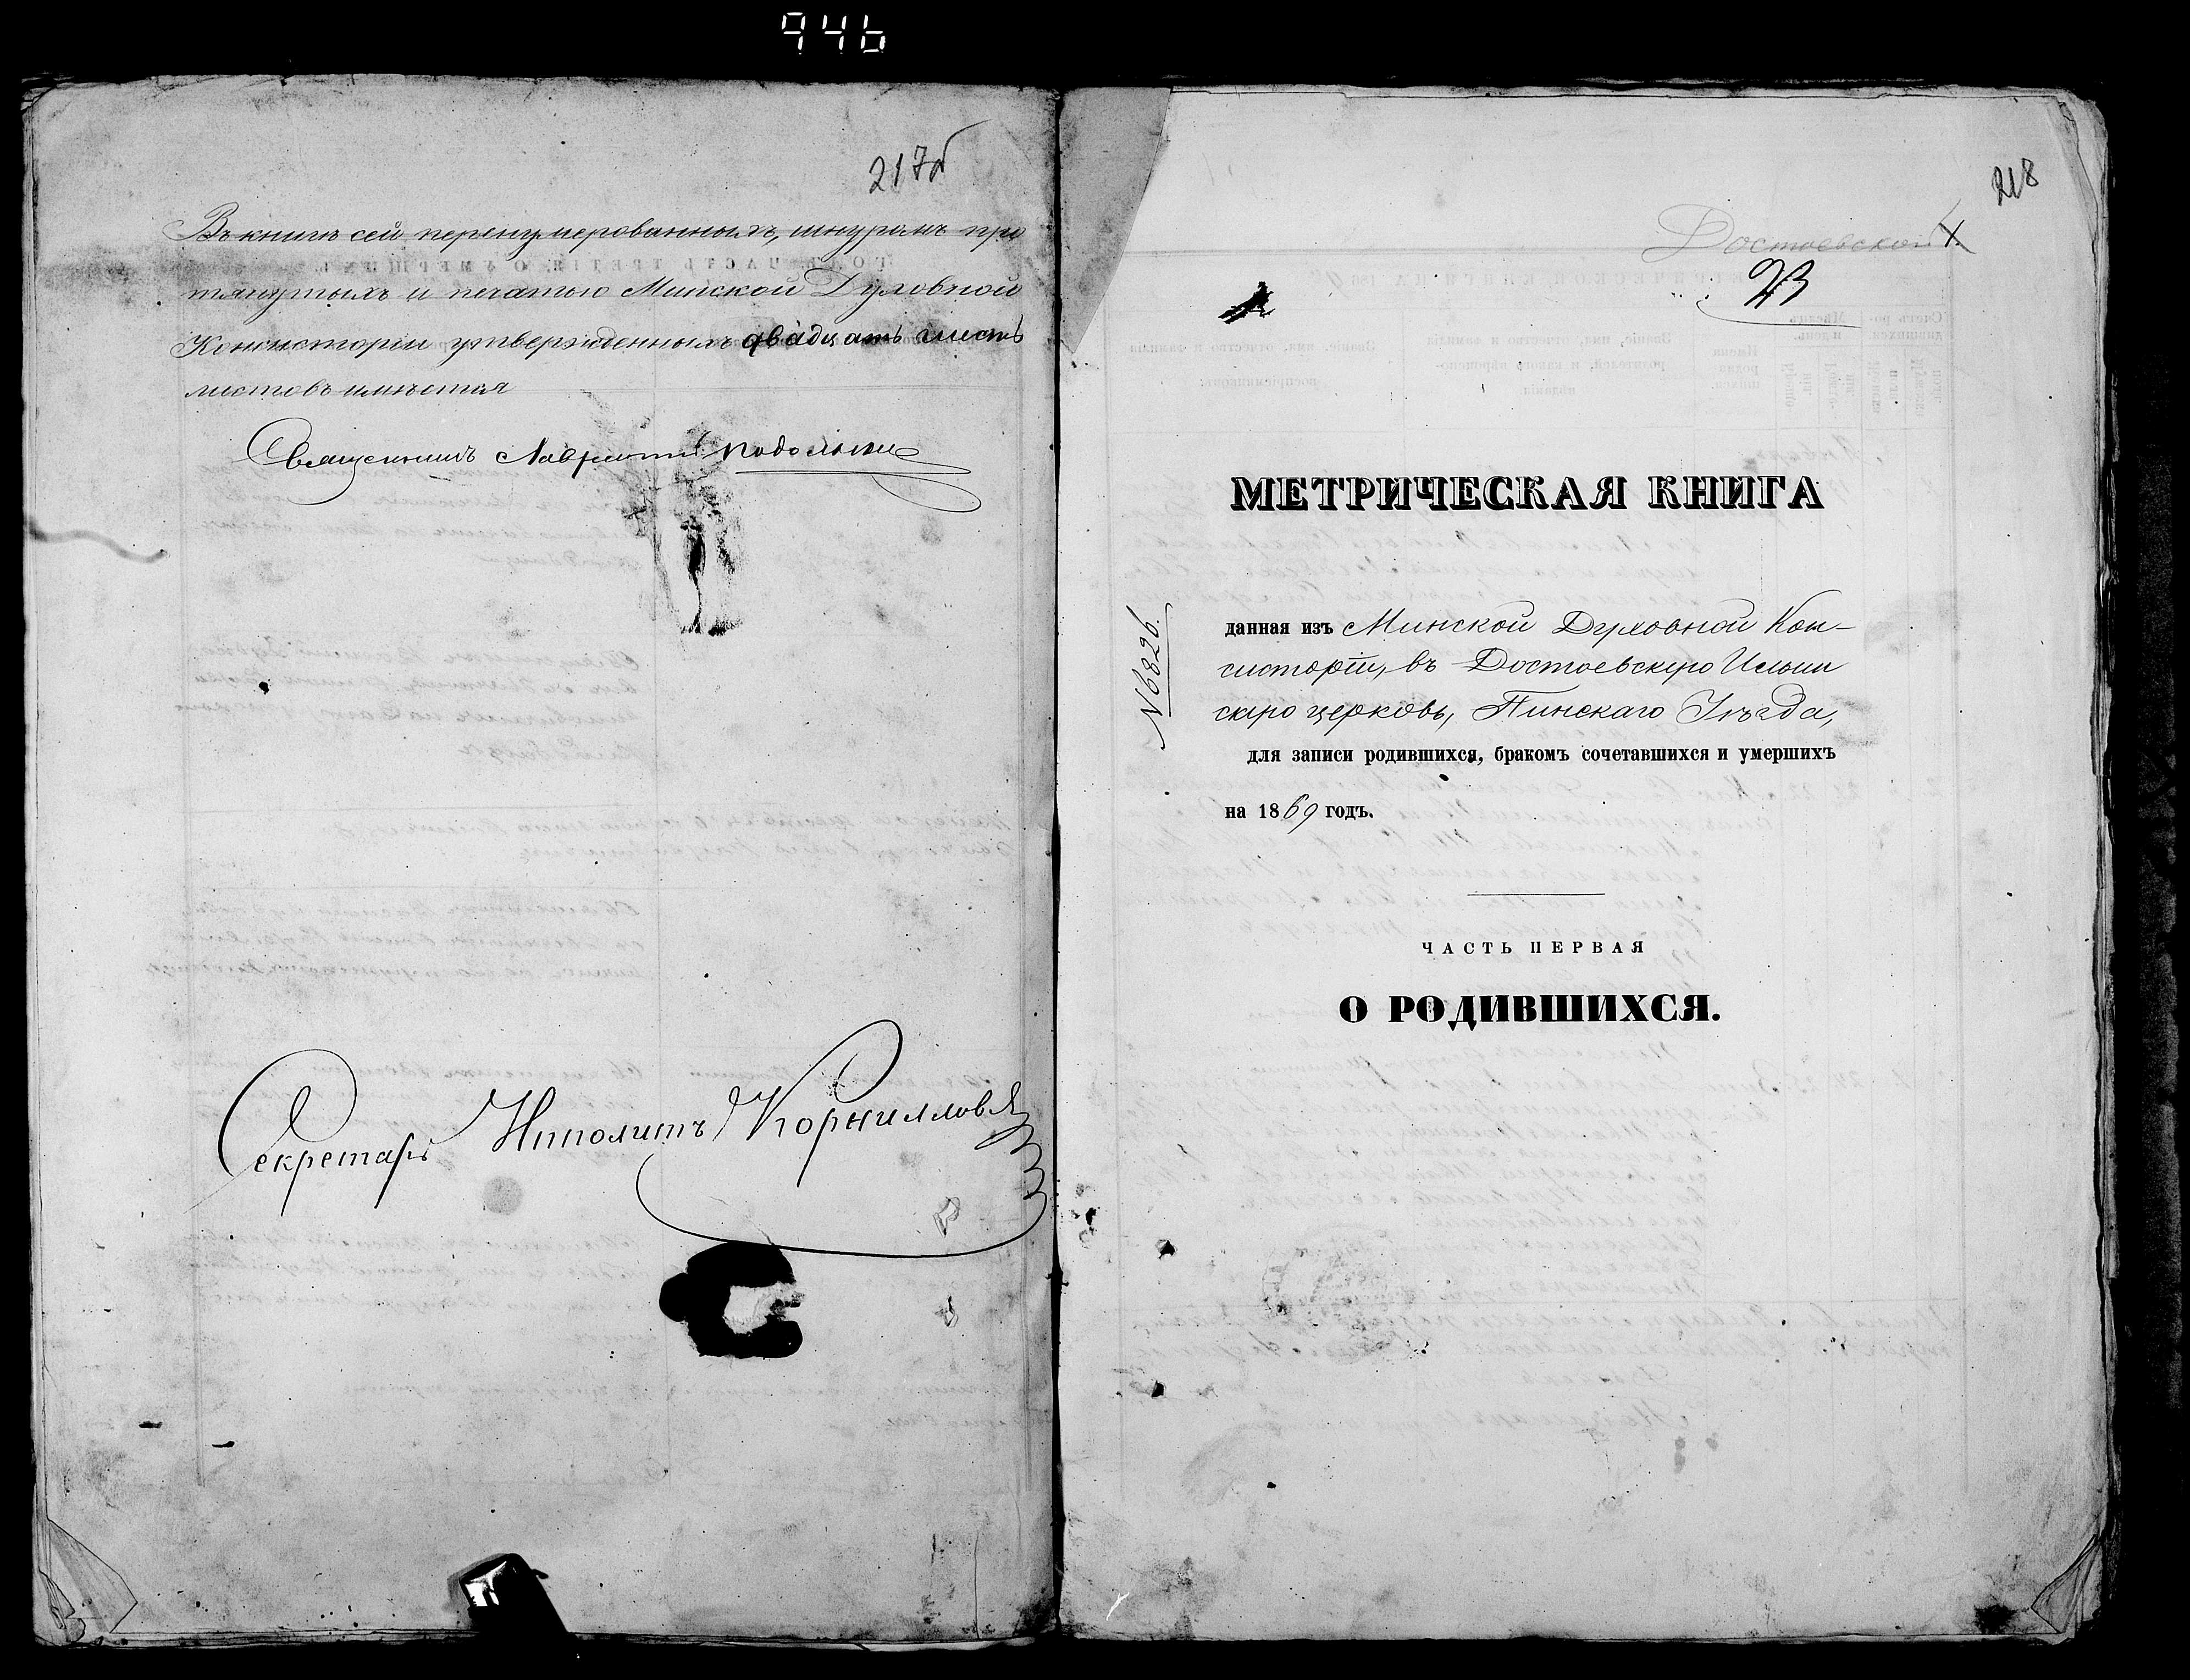 946
217б
Въ книгѣ сей перенумерованныхъ, шнуромъ про
тянутыхъ и печатью Минской Духовной
Консисторіи утвержденныхъ двадцать шесть
листовъ имѣется
Священникъ Лаврентій Подольскій
Секретарь Ипполитъ Корниловъ
218
Достоевской
23
МЕТРИЧЕСКАЯ КНИГА
№6826.
данная изъ Минской Духовной Кон-
систоріи, въ Достоевскую Ильин
скую церковь, Пинскаго Уѣзда,
для записи родившихся, бракомъ сочетавшихся и умершихъ
на 1869 годъ.
ЧАСТЬ ПЕРВАЯ
О РОДИВШИХСЯ.